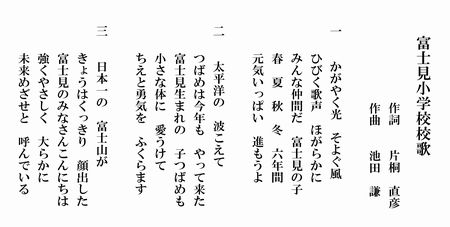 富士見小学校校歌
作詞　片桐　直彦
作曲　池田　謙
一　かがやく光　そよぐ風
ひびく歌声　ほがらかに
みんな仲間だ　富士見の子
春　夏　秋　冬　六年間
元気いっぱい　進もうよ
二　太平洋の　波こえて
つばめは今年も　やって来た
富士見生まれの　子つばめも
小さな体に　愛うけて
ちえと勇気を　ふくらます
三　日本一の　富士山が
きょうはくっきり　顔出した
富士見のみなさんこんにちは
強くやさしく　大らかに
未来めざせと　呼んでいる